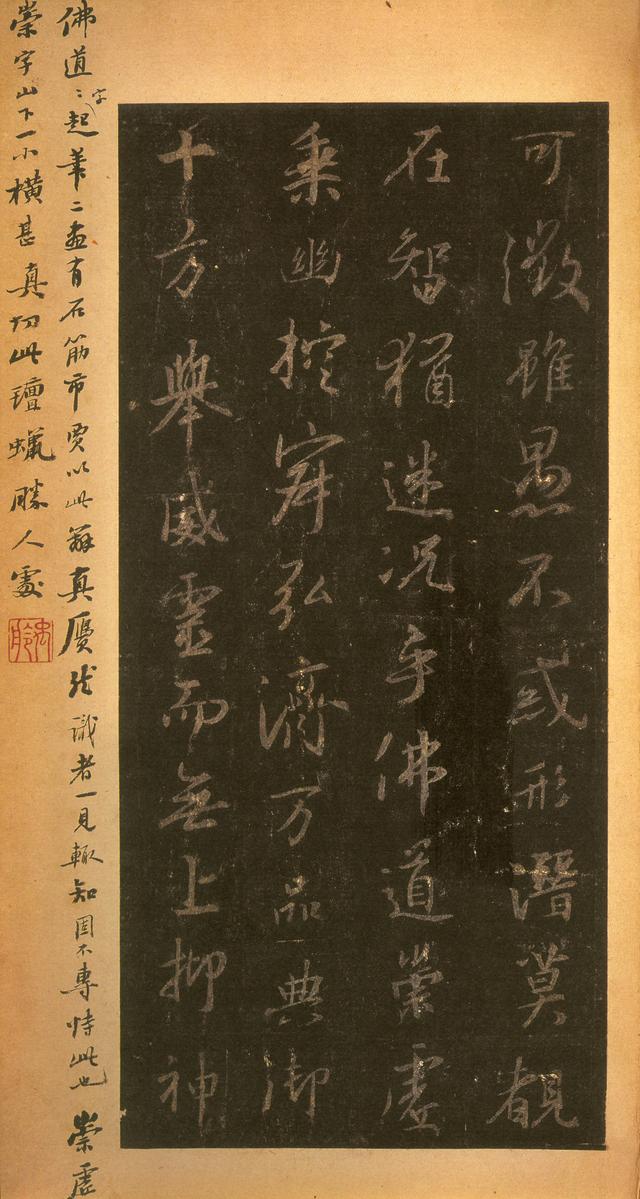 可徵雖愚不惑形潛莫覩
在智猶迷況乎佛道崇虛
乘幽控寂弘濟万品典御
十方舉威靈而無上抑神
佛道〻字起筆二畫有石筋市賈以此辨真贋然識者一見輒知固不專恃此也 崇虛
崇字山下一小橫甚真切此氊蠟勝人處